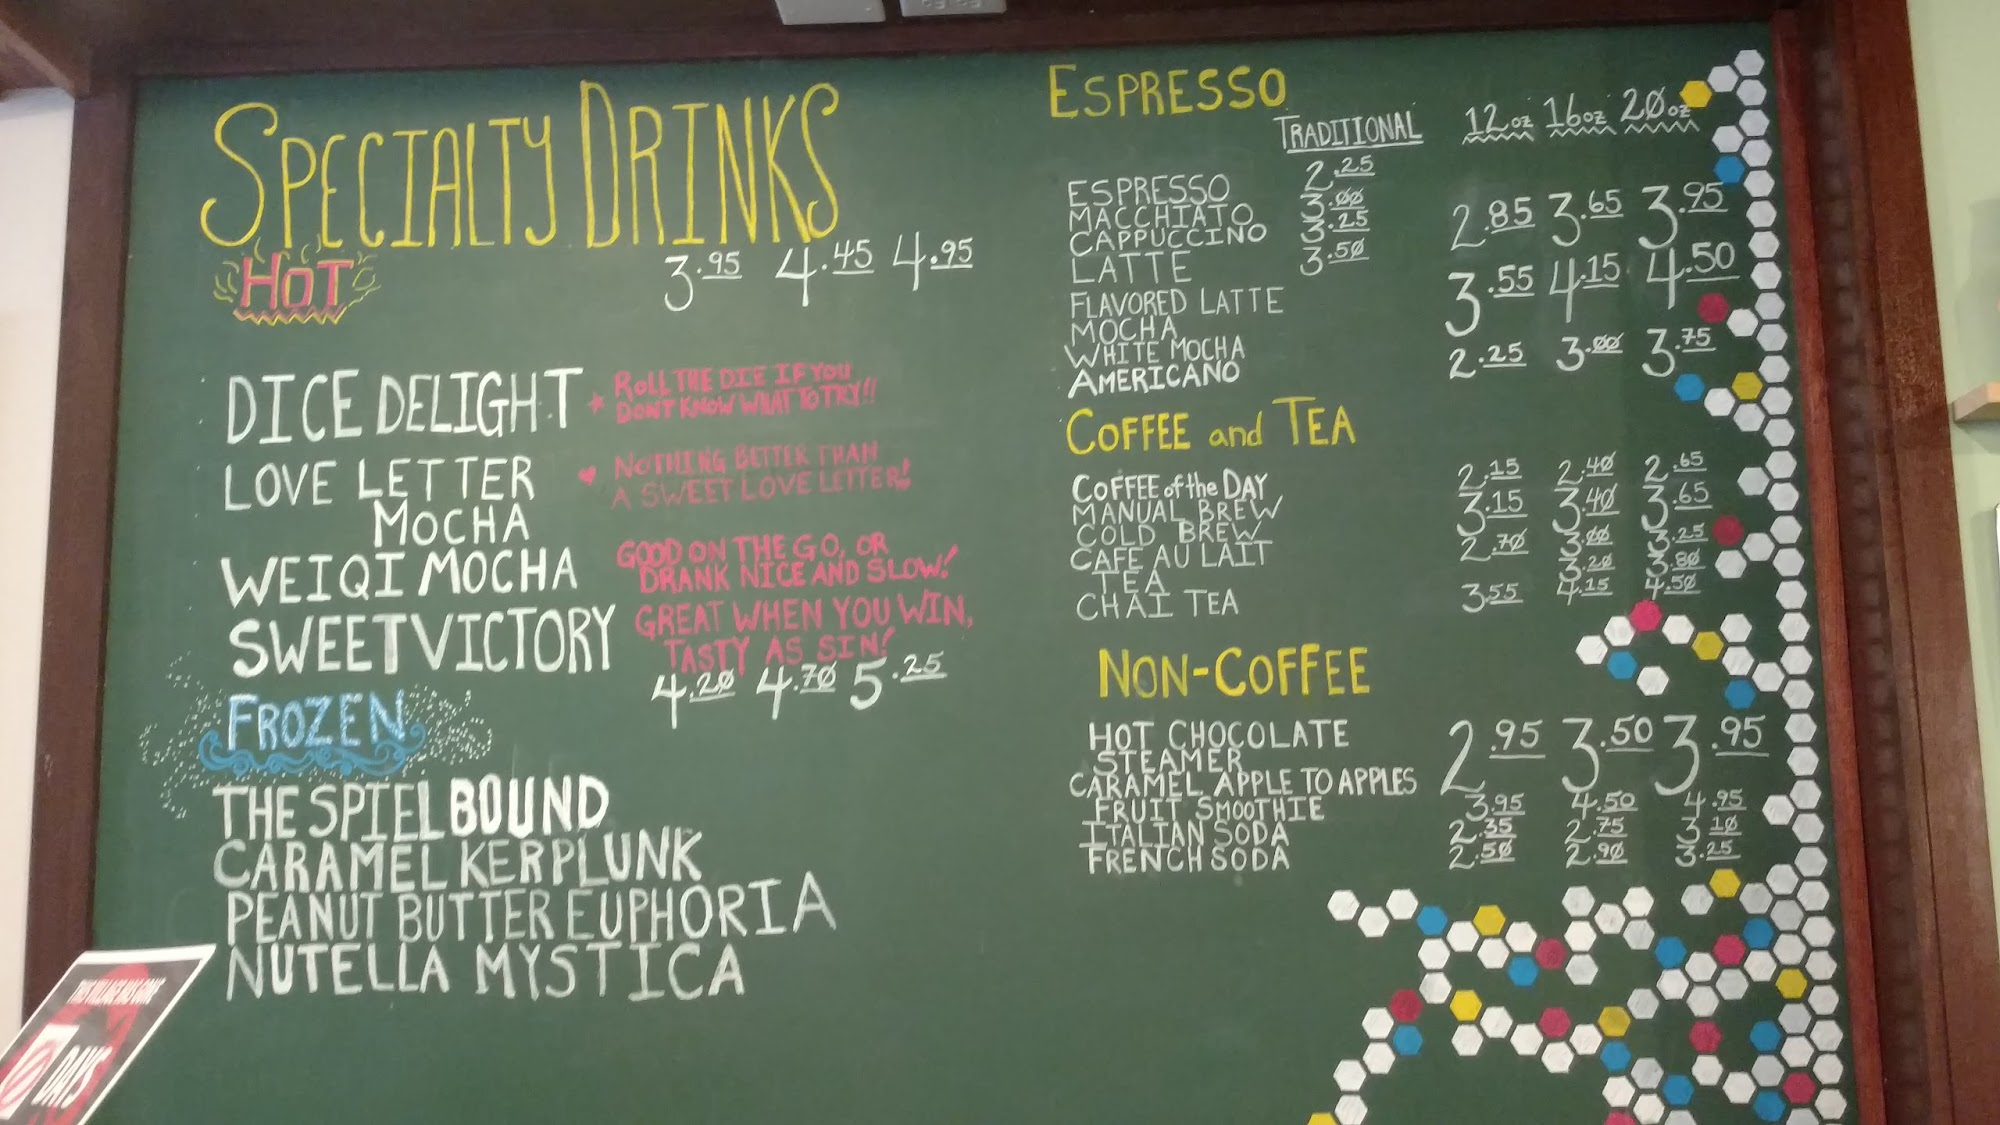 SPECIALTY DRINKS
HOT
3.95 4.45 4.95
DICE DELIGHT
ROLL THE DIE IF YOU
DONT KNOW WHAT TO TRY!!
LOVE LETTER
MOCHA
NOTHING BETTER THAN
A SWEET LOVE LETTER!
WEIQI MOCHA
GOOD ON THE GO, OR
DRANK NICE AND SLOW!
SWEET VICTORY
GREAT WHEN YOU WIN,
TASTY AS SIN!
FROZEN
4.20 4.70 5.25
THE SPIELBOUND
CARAMEL KERPLUNK
PEANUT BUTTER EUPHORIA
NUTELLA MYSTICA
DAYS
ESPRESSO
TRADITIONAL 12oz 16oz 20oz
ESPRESSO 2.25
MACCHIATO 3.00
CAPPUCCINO 3.25
LATTE 3.50
2.85 3.65 3.95
FLAVORED LATTE
MOCHA
WHITE MOCHA
3.55 4.15 4.50
AMERICANO 2.25 3.00 3.75
COFFEE and TEA
COFFEE of the DAY 2.15 2.40 2.65
MANUAL BREW
COLD BREW 3.15 3.40 3.65
CAFE AU LAIT 2.70 3.00 3.25
TEA 3.20 3.80
CHAI TEA 3.55 4.15 4.50
NON-COFFEE
HOT CHOCOLATE
STEAMER
CARAMEL APPLE TO APPLES
2.95 3.50 3.95
FRUIT SMOOTHIE 3.95 4.50 4.95
ITALIAN SODA 2.35 2.75 3.10
FRENCH SODA 2.50 2.90 3.25